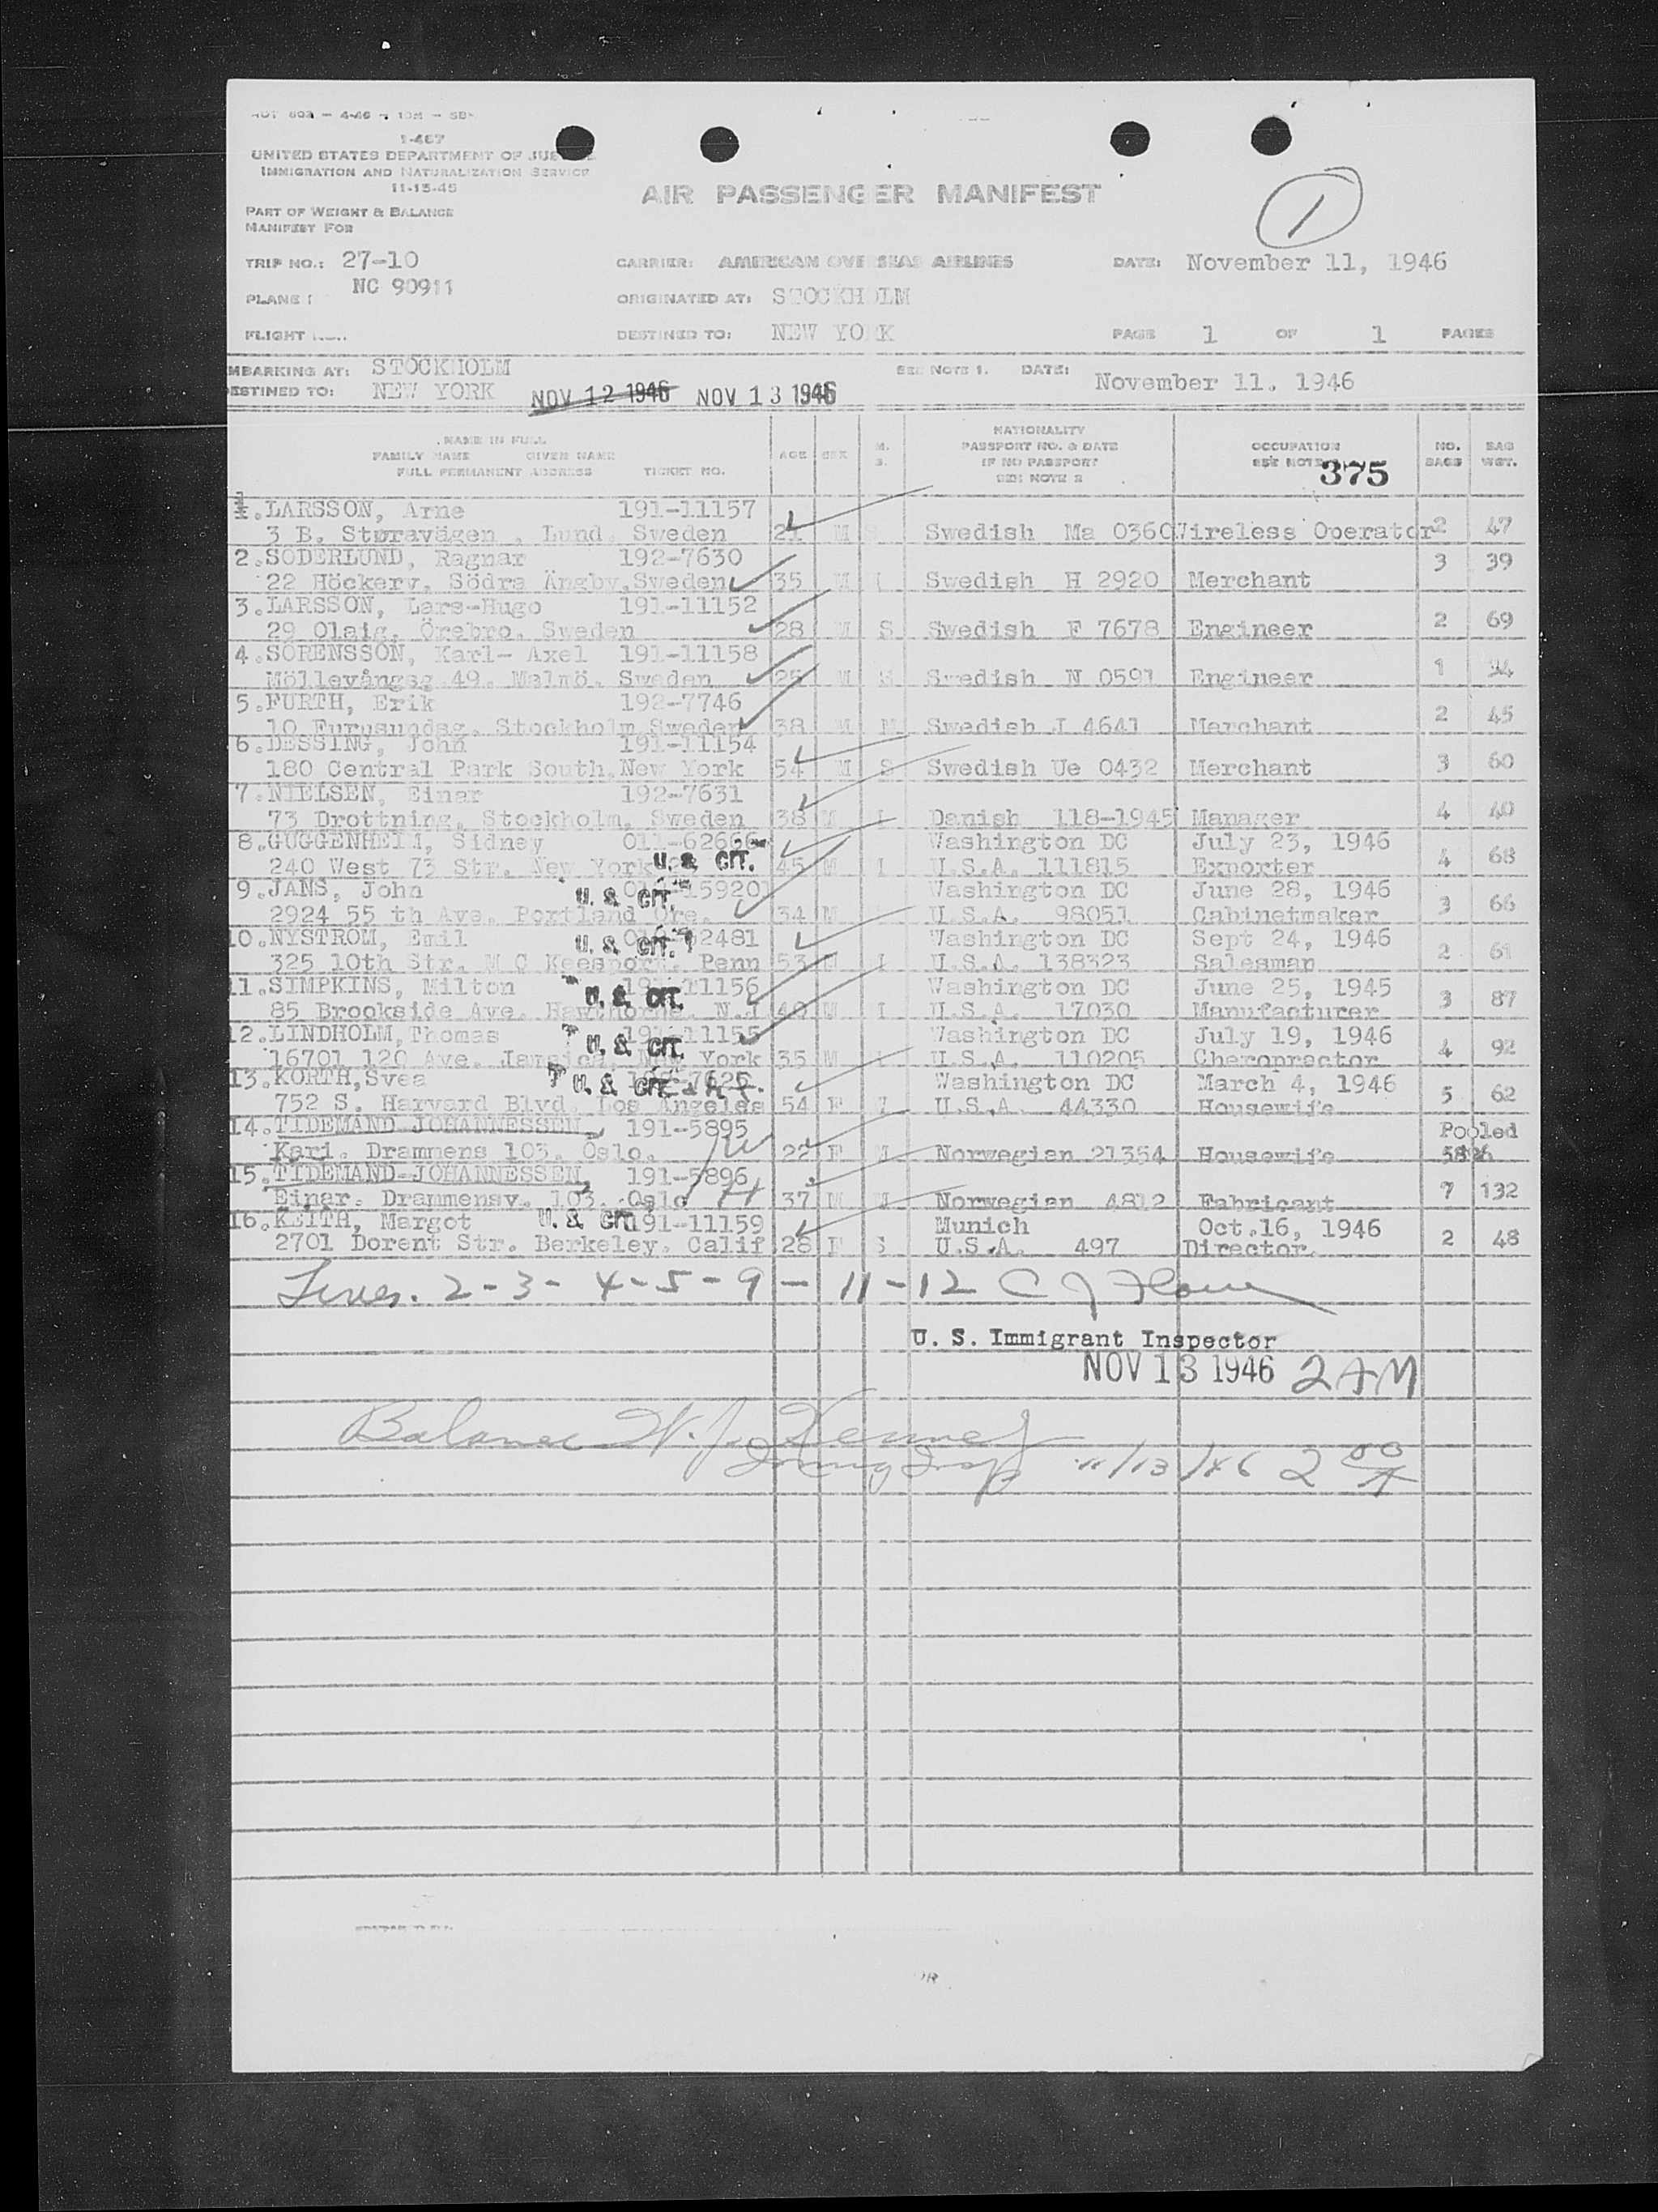 1-467
UNITED STATES DEPARTMENT OF
IMMIGRATION AND NATURALIZATION SERVICE
11-15-45
AIR PASSENGER MANIFEST
1
PART OF WEIGHT & BALANCE
MANIFEST FOR
TRIP NO.: 27-10 CARRIER: AMERICAN OVERSEAS AIRLINES DATE: November 11, 1946
PLANE: NC 90911 ORIGINATED AT: STOCKHOLM
FLIGHT DESTINED TO: NEW YORK PAGE 1 OF 1 PAGES
EMBARKING AT: STOCKHOLM SEE NOTE 1. DATE: November 11. 1946
DESTINED TO: NEW YORK NOV 12 1946 NOV 13 1946
NAME IN FULL
FAMILY NAME GIVEN NAME
FULL PERMANENT ADDRESS TICKET NO.
AGE SEX M. S.
NATIONALITY
PASSPORT NO. & DATE
IF NO PASSPORT
SEE NOTE 2
OCCUPATION
SEE NOTE 375
NO. BAGS
BAG WGT.
1. LARSSON, Arne 191-11157
3 B. Støravägen , Lund. Sweden 21 M Swedish Ma 0360 Wireless Operator 2 47
2. SÖDERLUND, Ragnar 192-7630 3 39
22 Höckerv. Södra Ängby, Sweden 35 M Swedish H 2920 Merchant
3. LARSSON, Lars-Hugo 191-11152
29 Olaig. Örebro. Sweden 28 M S Swedish F 7678 Engineer 2 69
4. SÖRENSSON, Karl- Axel 191-11158
Möllevångsg 49. Malmö. Sweden 25 M Swedish N 0591 Engineer 1 34
5. FURTH, Erik 192-7746
10 Furusundsg. Stockholm Sweden 38 M M Swedish I 4641 Merchant 2 45
6. DESSING, John 191-11154
180 Central Park South, New York 54 M S Swedish Ue 0432 Merchant 3 60
7. NIELSEN, Einar 192-7631
73 Drottning. Stockholm. Sweden 38 M Danish 118-1945 Manager 4 40
8. GUGGENHEIM, Sidney 011-62666 Washington DC July 23, 1946
240 West 73 Str. New York U. S. CIT. 45 M U.S.A. 111815 Exporter 4 68
9. JANS, John U. S. CIT. Washington DC June 28, 1946
2924 55 th Ave. Portland Ore. 34 M U.S.A. 98051 Cabinetmaker 3 66
10. NYSTROM, Emil U. S. CIT. Washington DC Sept 24, 1946
325 10th Str. M C Keesport. Penn 53 M U.S.A. 138323 Salesman 2 61
11. SIMPKINS, Milton U. S. CIT. 191-11156 Washington DC June 25, 1945
85 Brookside Ave. Hawthorne. N.J 40 M U.S.A. 17030 Manufacturer 3 87
12. LINDHOLM, Thomas U. S. CIT. 191-11155 Washington DC July 19, 1946
16701 120 Ave. Jamaica New York 35 M U.S.A. 110205 Cheroprector 4 92
13. KORTH, Svea U. S. CIT. Washington DC March 4, 1946
752 S. Harvard Blvd. Los Angeles 54 F U.S.A. 44330 Housewife 5 62
14. TIDEMAND JOHANNESSEN, 191-5895 Pooled
Kari. Drammens 103. Oslo. 22 F M Norwegian 21354 Housewife
15. TIDEMAND-JOHANNESSEN, 191-5896
Einar. Drammensv. 103. Oslo 37 M M Norwegian 4812 Fabricant 7 132
16. KEITH, Margot U. S. CIT 191-11159 Munich Oct.16, 1946
2701 Dorent Str. Berkeley. Calif 28 F S U.S.A. 497 Director. 2 48
Lines. 2-3-4-5-9-11-12 C J
U. S. Immigrant Inspector
NOV 13 1946 2 AM
Balance W. J.
Immig Insp 11/13/46 2 00 A